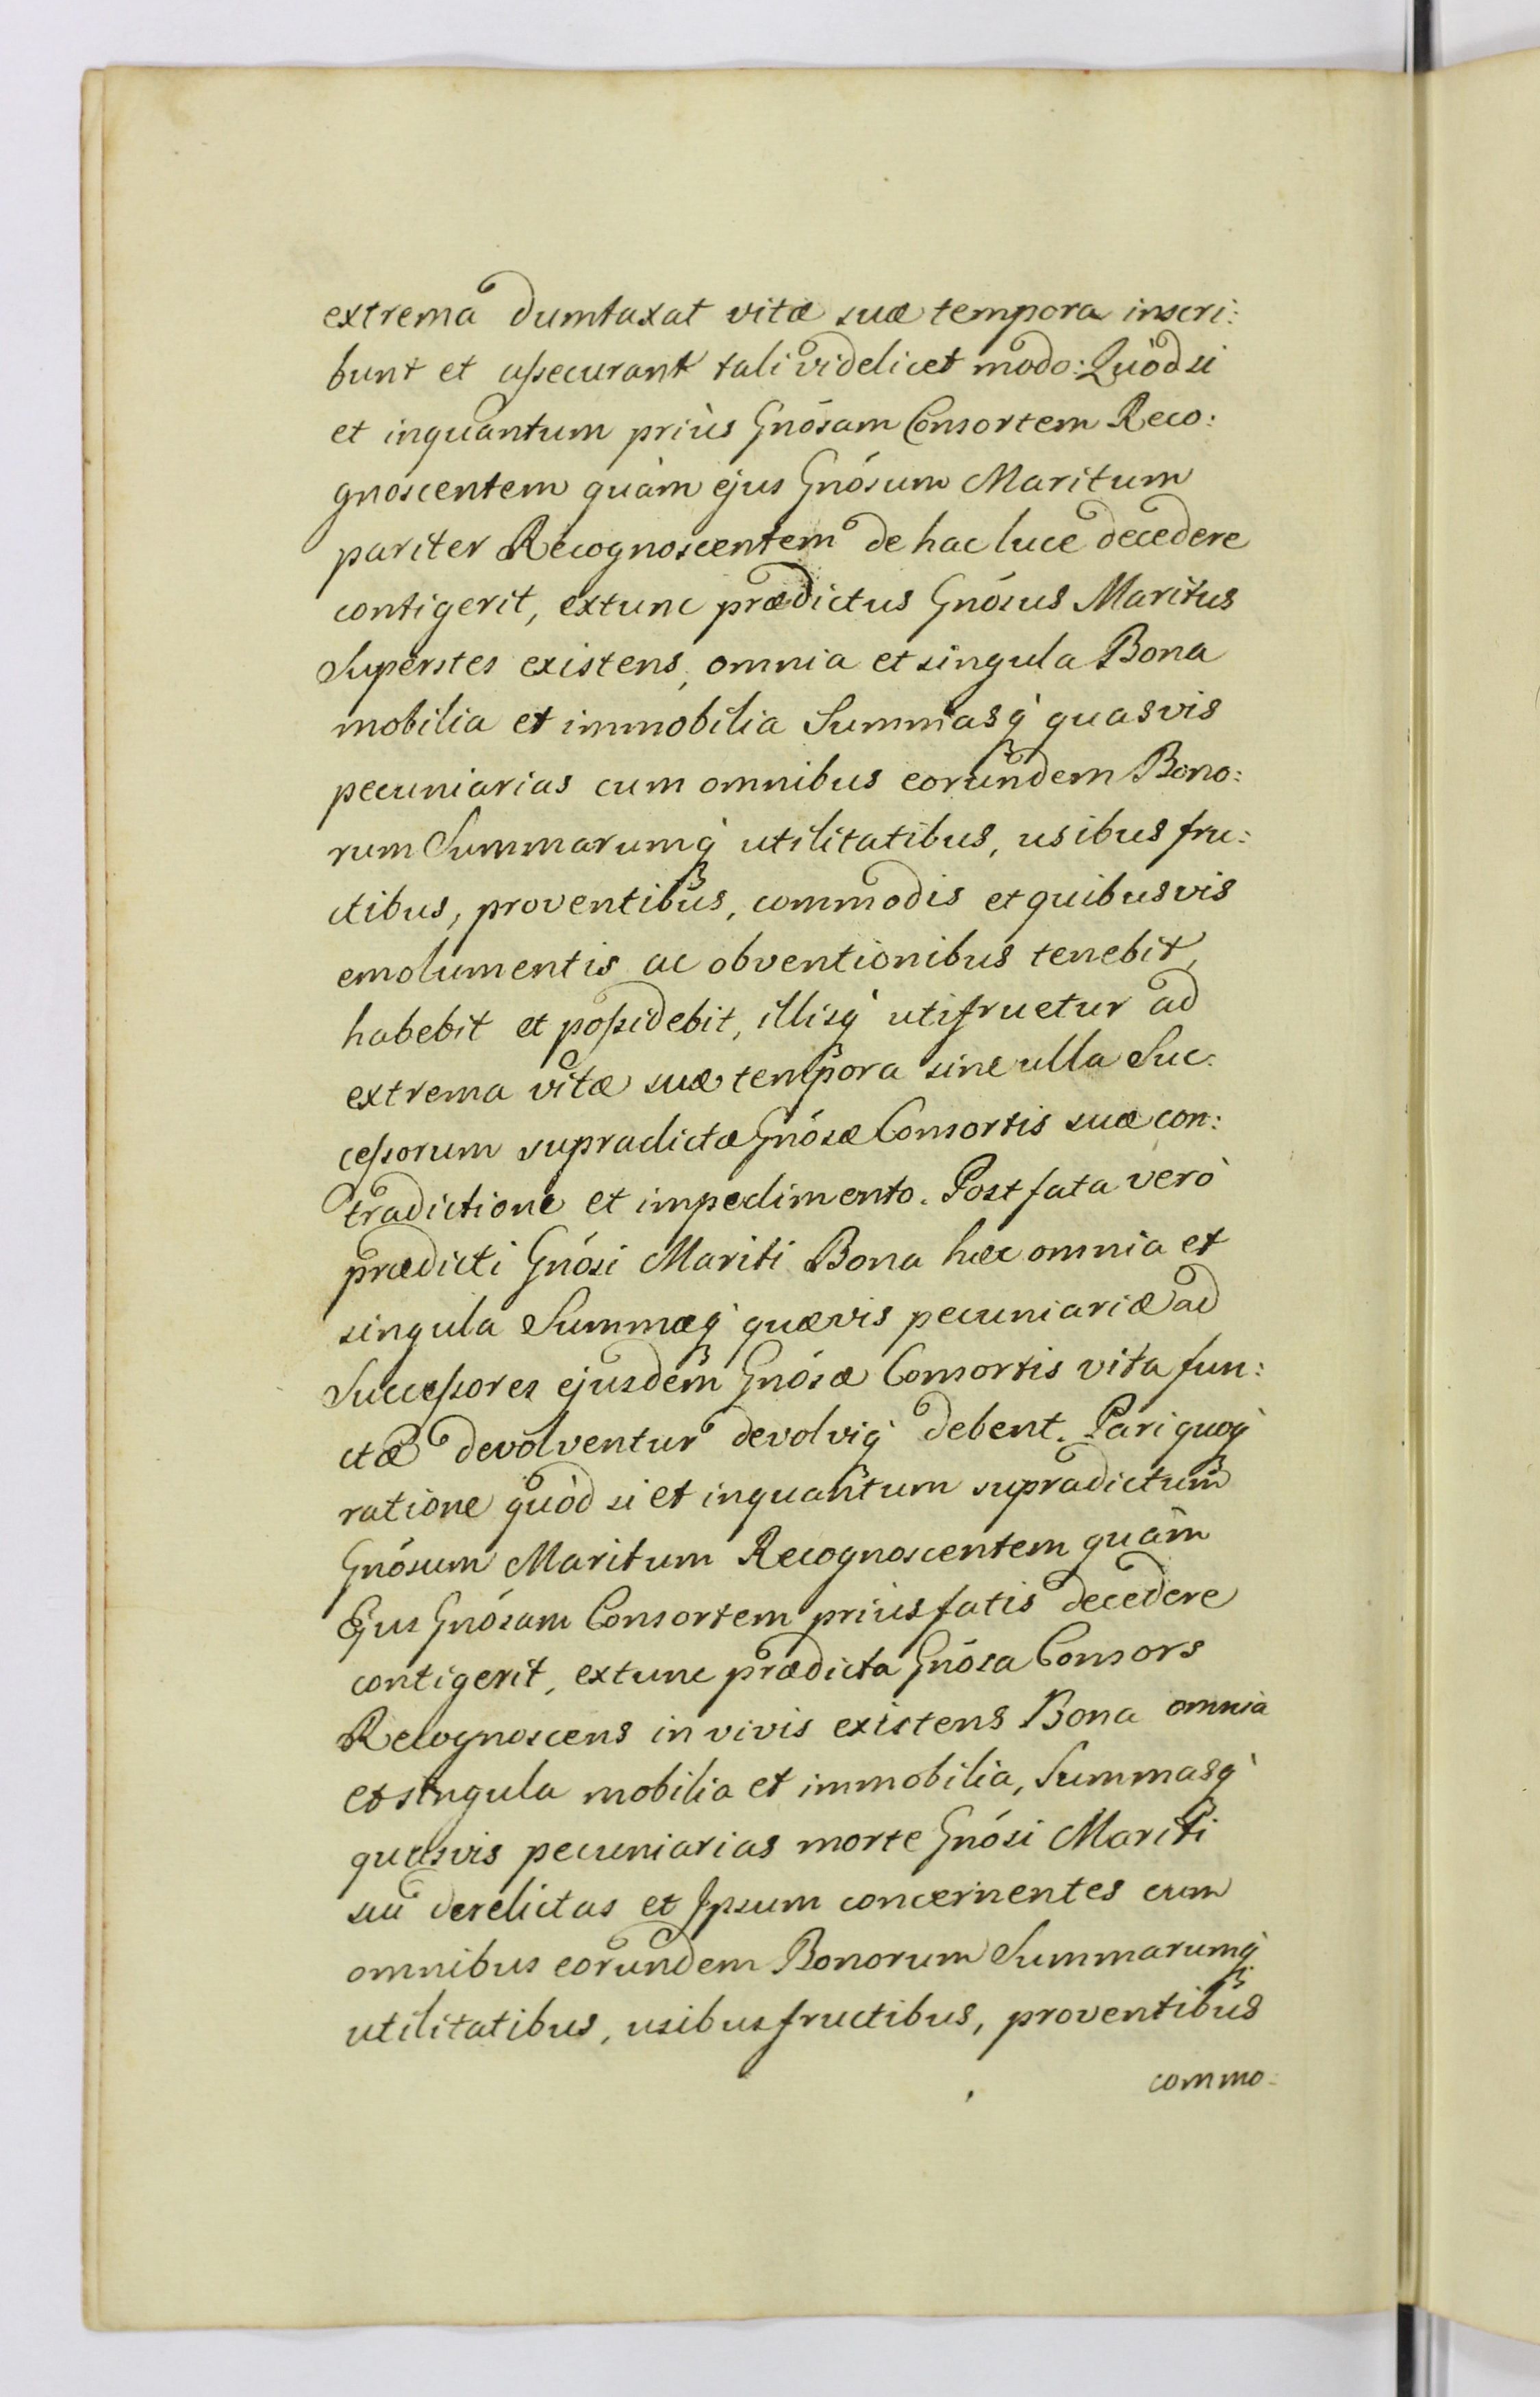 extrema dumtaxat vitæ suæ tempora inscri:
bunt et aſsecurant tali videlicet modo: Quòd si
et inquantum priùs Gnósam Consortem Reco:
gnoscentem quàm ejus Gnósum Maritum
pariter Recognoscentem de hac luce decedere
contigerit, extunc prædictus Gnósus Maritus
Superstes existens, omnia et singula Bona
mobilia et immobilia Summasq̀ quasvis
pecuniarias cum omnibus eorundem Bono:
rum Summarumq̀ utilitatibus, usibus fru:
ctibus, proventibus, commodis et quibusvis
emolumentis ac obventionibus tenebit,
habebit et poſsidebit, illisq̀ utifruetur ad
extrema vitæ suæ tempora sine ulla Suc:
ceſsorum supradictæ Gnósæ Consortis suæ con:
tradictione et impedimento. Post fata verò
prædicti Gnósi Mariti Bona hæc omnia et
singula Summæq̀ quævis pecuniariæ ad
Succeſsores ejusdem Gnósæ Consortis vita fun:
ctæ devolventur devolviq̀ debent. Pari quoq̀
ratione quòd si et inquantum supradictum
Gnósum Maritum Recognoscentem quàm
Ejus Gnósam Consortem priùs fatis decedere
contigerit, extunc prædicta Gnósa Consors
Recognoscens in vivis existens Bona omnia
et singula mobilia et immobilia, Summasq̀
quasvis pecuniarias morte Gnósi Mariti
sui derelictas et Ipsum concernentes cum
omnibus eorundem Bonorum Summarumq̀
utilitatibus, usibusfructibus, proventibus
commo: